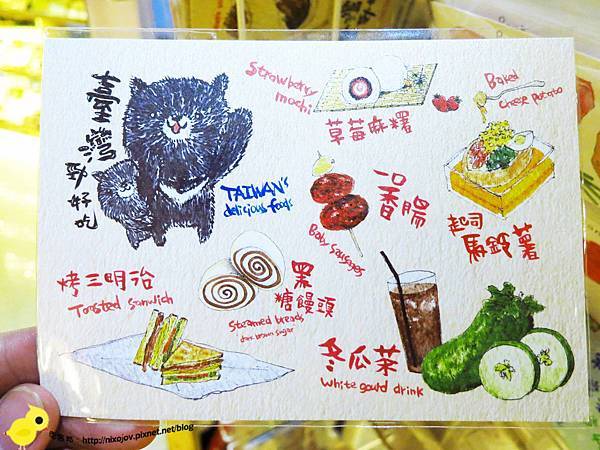 臺灣
勁好吃
TAIWAN's
delicious foods
Strawberry
mochi
草莓麻糬
Baked
cheese potato
起司
馬鈴薯
一口
香腸
Baby sausages
烤三明治
Torsted sanwich
黑
糖饅頭
Steamed breads
dark brown sugar
冬瓜茶
White gourd drink
http://nixojov.pixnet.net/blog